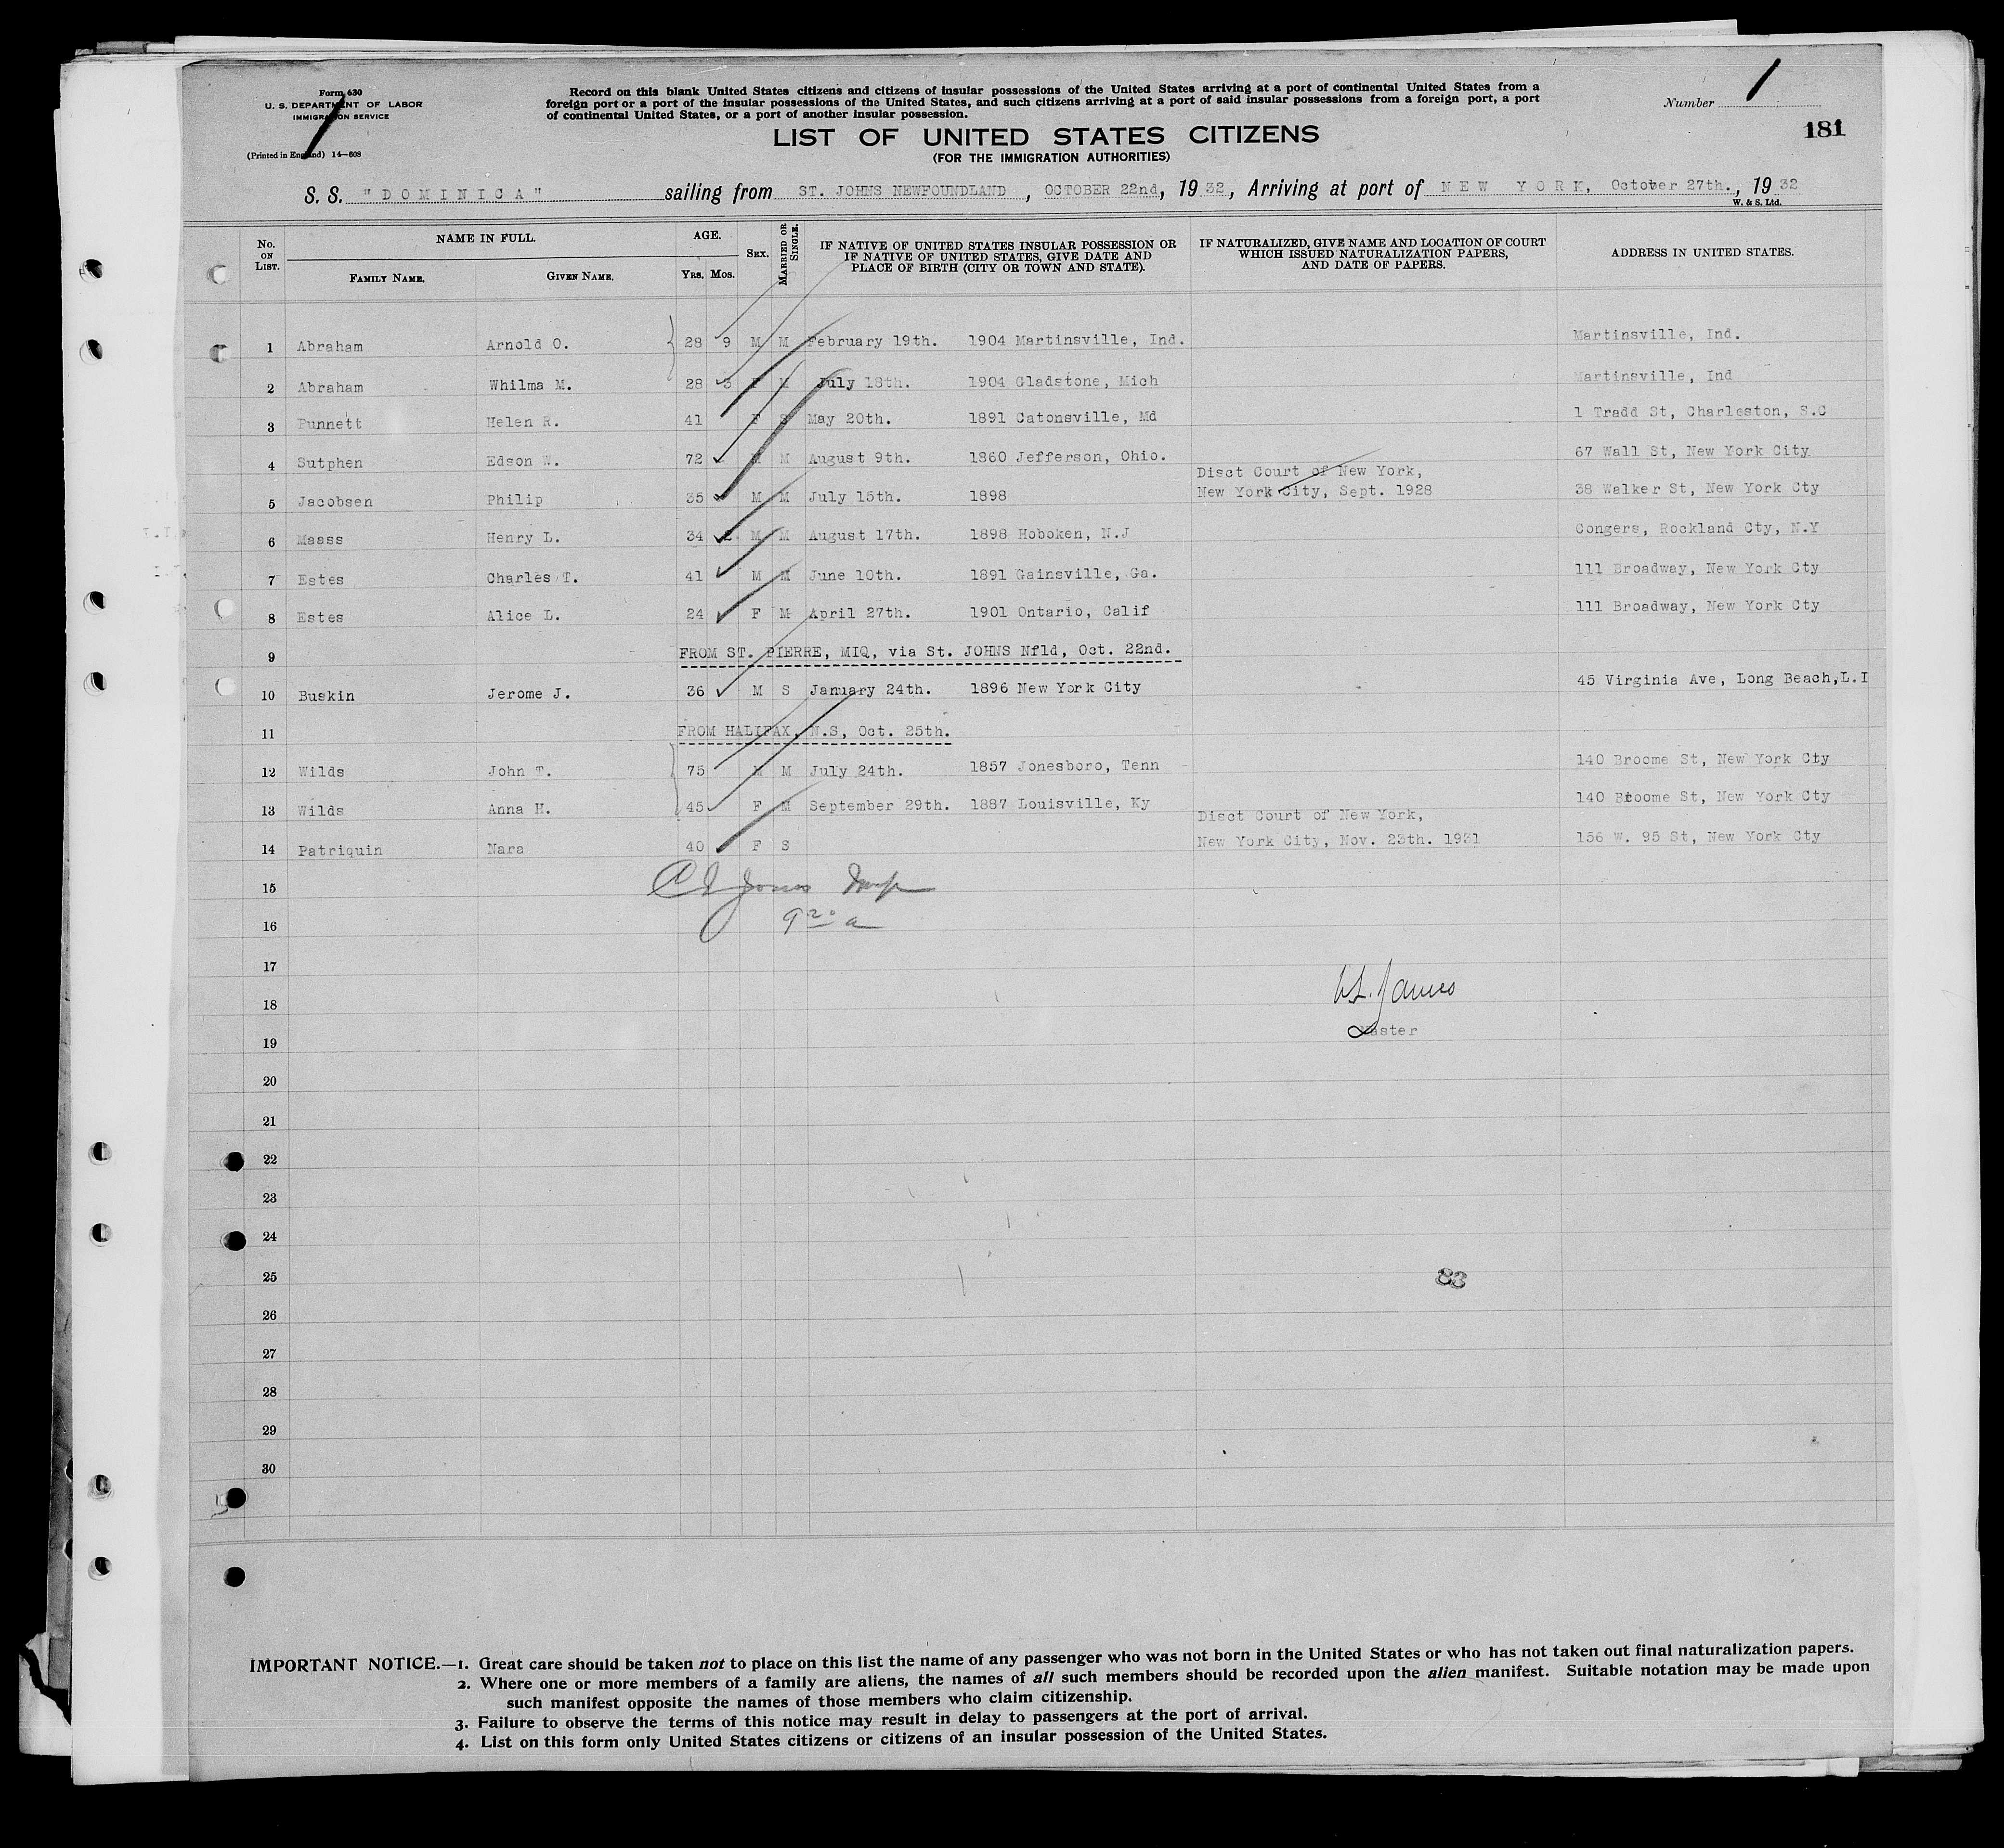 Form 630
U. S. DEPARTMENT OF LABOR
IMMIGRATION SERVICE
(Printed in England) 14—608
Record on this blank United States citizens and citizens of insular possessions of the United States arriving at a port of continental United States from a
foreign port or a port of the insular possessions of the United States, and such citizens arriving at a port of said insular possessions from a foreign port, a port
of continental United States, or a port of another insular possession.
Number 1
181
LIST OF UNITED STATES CITIZENS
(FOR THE IMMIGRATION AUTHORITIES)
S. S. "DOMINICA" sailing from ST. JOHNS NEWFOUNDLAND, OCTOBER 22nd, 1932, Arriving at port of NEW YORK, October 27th., 1932
W. & S. Ltd.
No. ON LIST. NAME IN FULL. FAMILY NAME. GIVEN NAME. AGE. YRS. MOS. SEX. MARRIED OR SINGLE. IF NATIVE OF UNITED STATES INSULAR POSSESSION OR IF NATIVE OF UNITED STATES, GIVE DATE AND PLACE OF BIRTH (CITY OR TOWN AND STATE). IF NATURALIZED, GIVE NAME AND LOCATION OF COURT WHICH ISSUED NATURALIZATION PAPERS, AND DATE OF PAPERS. ADDRESS IN UNITED STATES.
1 Abraham Arnold O. 28 9 M M February 19th. 1904 Martinsville, Ind. Martinsville, Ind.
2 Abraham Whilma M. 28 3 F M July 18th. 1904 Gladstone, Mich Martinsville, Ind
3 Punnett Helen R. 41 F S May 20th. 1891 Catonsville, Md 1 Tradd St, Charleston, S.C
4 Sutphen Edson W. 72 M M August 9th. 1860 Jefferson, Ohio. 67 Wall St, New York City
Disct Court of New York,
5 Jacobsen Philip 35 M M July 15th. 1898 New York City, Sept. 1928 38 Walker St, New York Cty
6 Maass Henry L. 34 2 M M August 17th. 1898 Hoboken, N.J Congers, Rockland Cty, N.Y
7 Estes Charles T. 41 M M June 10th. 1891 Gainsville, Ga. 111 Broadway, New York Cty
8 Estes Alice L. 24 F M April 27th. 1901 Ontario, Calif 111 Broadway, New York Cty
9 FROM ST. PIERRE, MIQ, via St. JOHNS Nfld, Oct. 22nd.
10 Buskin Jerome J. 36 M S January 24th. 1896 New York City 45 Virginia Ave, Long Beach,L.I
11 FROM HALIFAX, N.S, Oct. 25th.
12 Wilds John T. 75 M M July 24th. 1857 Jonesboro, Tenn 140 Broome St, New York Cty
13 Wilds Anna H. 45 F M September 29th. 1887 Louisville, Ky 140 Broome St, New York Cty
Disct Court of New York,
14 Patriquin Nara 40 F S New York City, Nov. 23th. 1931 156 W. 95 St, New York Cty
15 Jones Insp
16 9 20 a
17
18 W.L. James
Master
19
20
21
22
23
24
25 83
26
27
28
29
30
IMPORTANT NOTICE.—1. Great care should be taken not to place on this list the name of any passenger who was not born in the United States or who has not taken out final naturalization papers.
2. Where one or more members of a family are aliens, the names of all such members should be recorded upon the alien manifest. Suitable notation may be made upon
such manifest opposite the names of those members who claim citizenship.
3. Failure to observe the terms of this notice may result in delay to passengers at the port of arrival.
4. List on this form only United States citizens or citizens of an insular possession of the United States.